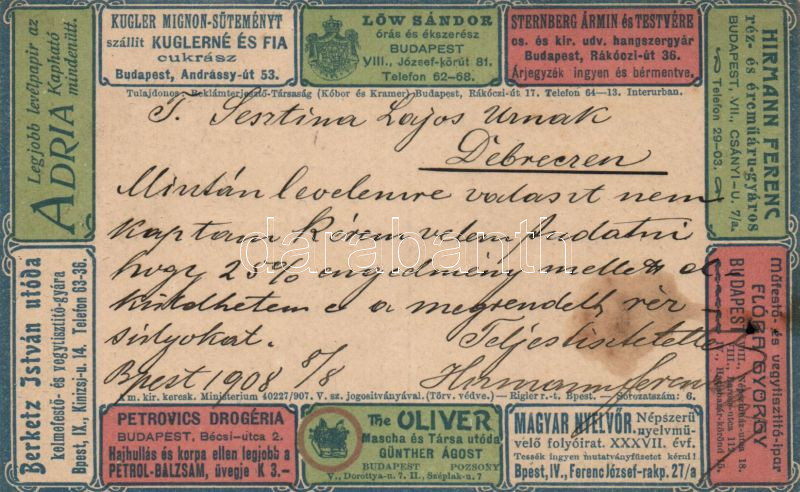 Legjobb levélpapir az
ADRIA Kapható
mindenütt.
KUGLER MIGNON-SÜTEMÉNYT
szállit KUGLERNÉ ÉS FIA
cukrász
Budapest, Andrássy-út 53.
LÖW SÁNDOR
órás és ékszerész
BUDAPEST
VIII., József-körút 81.
Telefon 62-68.
STERNBERG ÁRMIN és TESTVÉRE
cs. és kir. udv. hangszergyár
Budapest, Rákóczi-út 36.
Árjegyzék ingyen és bérmentve.
HIRMANN FERENC
réz- és ércműáru-gyáros
BUDAPEST, VII., CSÁNYI-U. 7/a.
Telefon 29-03.
Tulajdonos: Reklámterjesztő-Társaság (Kóbor és Kramer) Budapest, Rákóczi-út 17. Telefon 64-13. Interurban.
T. Sesztina Lajos Urnak
Debreczen
Mintán levelemre valaszt nem
kaptam kérem velem tudatni
hogy 25% engedmény mellett el
küldhetem e a megrendelt réz-
sulyokat. Teljes tisztelettel
Bpest 1908 8/8 Hirmann Ferenc
darabanth
Berketz István utóda
kelmefestő- és vegytisztitó-gyára
Bpest, IX., Kinizsi-u. 14. Telefon 63-36.
Műfestő- és vegytisztitó-ipar
FLÓRA GYÖRGY
BUDAPEST
A m. kir. keresk. Ministerium 40227/907. V. sz. jogositványával. (Törv. védve.) — Rigler r.-t. Bpest. — Sorozatszám: 6.
PETROVICS DROGÉRIA
BUDAPEST, Bécsi-utca 2.
Hajhullás és korpa ellen legjobb a
PETROL-BALZSAM, üvegje K 3.—
The OLIVER
Mascha és Társa utóda
GÜNTHER ÁGOST
BUDAPEST POZSONY
V., Dorottya-u. 7. II., Széplak-u. 7
MAGYAR NYELVŐR. Népszerű
nyelvmű-
velő folyóirat. XXXVII. évf.
Tessék ingyen mutatványfüzetet kérni!
Bpest, IV., Ferenc József-rakp. 27/a